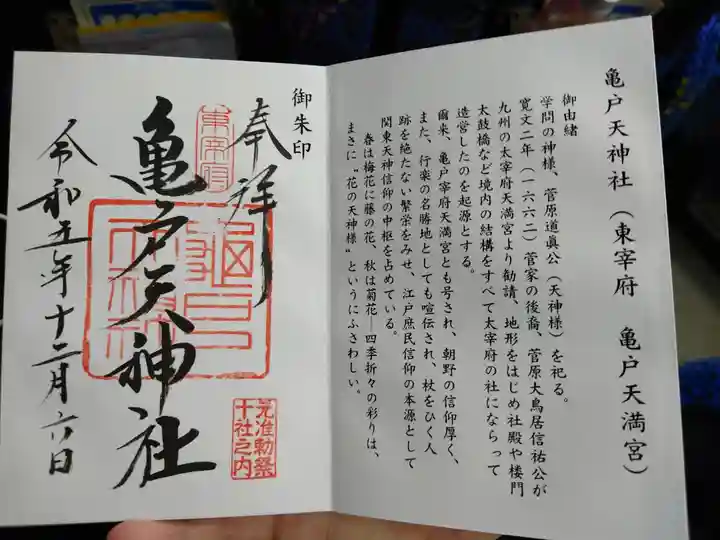 亀戸天神社(東宰府 亀戸天満宮)
御由緒
学問の神様、菅原道眞公(天神様)を祀る。
寛文二年(一六六二)菅家の後裔、菅原大鳥居信祐公が
九州の太宰府天満宮より勧請、地形をはじめ社殿や楼門
太鼓橋など境内の結構をすべて太宰府の社にならって
造営したのを起源とする。
爾来、亀戸宰府天満宮とも号され、朝野の信仰厚く、
また、行楽の名勝地としても喧伝され、杖をひく人
跡を絶たない繁栄をみせ、江戸庶民信仰の本源として
関東天神信仰の中枢を占めている。
春は梅花に藤の花、秋は菊花―四季折々の彩りは、
まさに〝花の天神様〟というにふさわしい。
御朱印
奉拝
東宰府
亀戸天神社
元准勅祭
十社之内
令和五年十二月六日